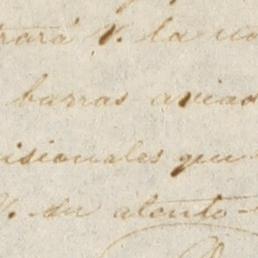 trará V. la no
barras aviad
isionales que
V. su atento